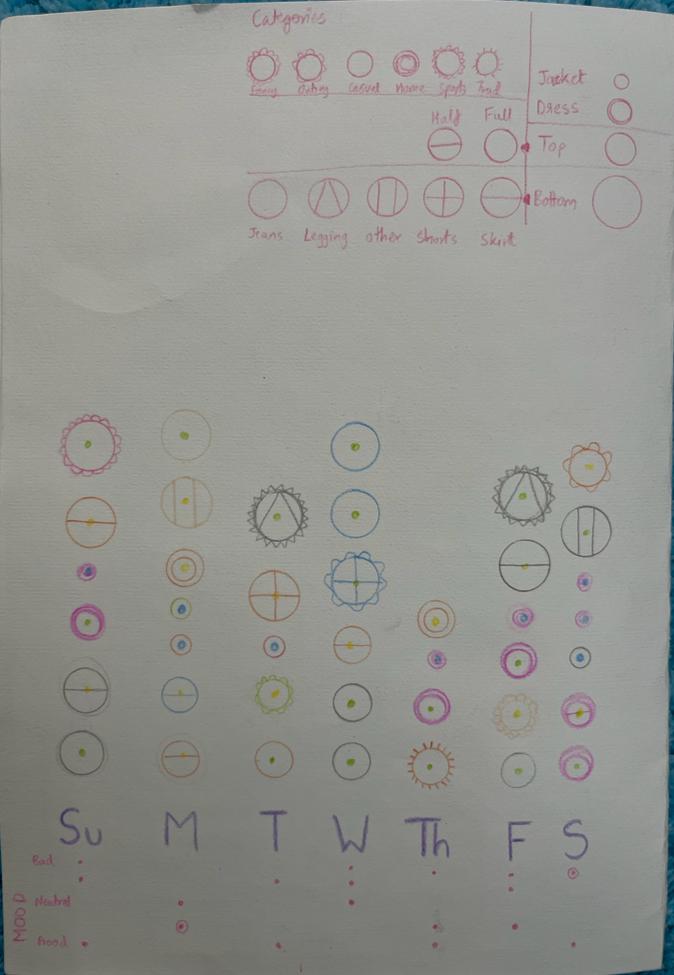 Categories
Fancy Outing Casual Home Sports Trad
Jacket
Dress
Half Full
Top
Bottom
Jeans Legging other Shorts Skirt
Su M T W Th F S
MOOD
Bad
Neutral
Good